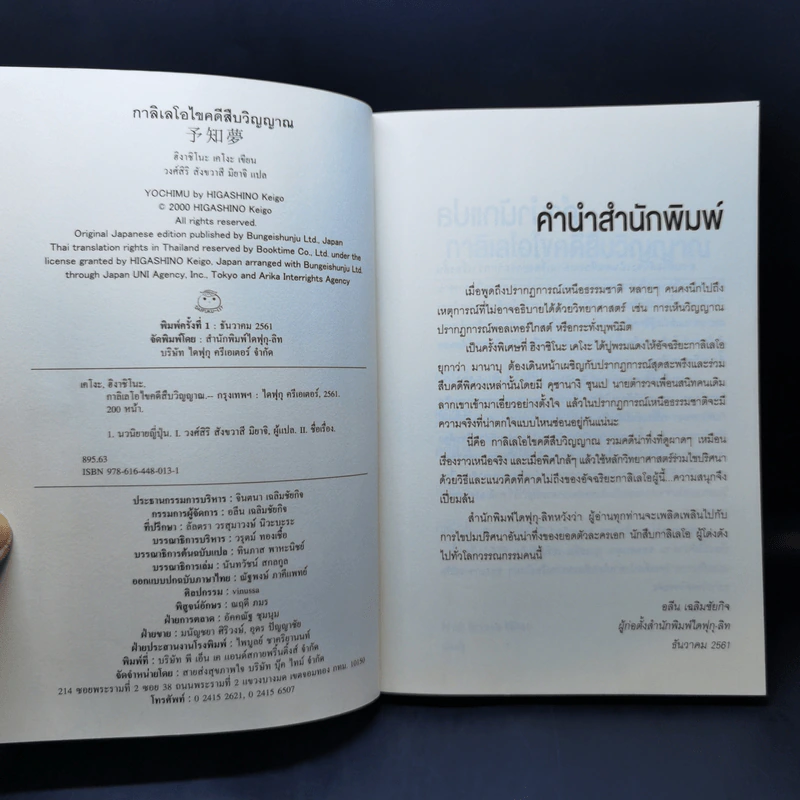 กาลิเลโอไขคดีสืบวิญญาณ
予知夢
ฮิงาชิโนะ เคโงะ เขียน
วงศ์สิริ สังขวาสี มิยาจิ แปล
YOCHIMU by HIGASHINO Keigo
© 2000 HIGASHINO Keigo
All rights reserved.
Original Japanese edition published by Bungeishunju Ltd., Japan
Thai translation rights in Thailand reserved by Booktime Co., Ltd. under the
license granted by HIGASHINO Keigo, Japan arranged with Bungeishunju Ltd.
through Japan UNI Agency, Inc., Tokyo and Arika Interrights Agency
พิมพ์ครั้งที่ 1 : ธันวาคม 2561
จัดพิมพ์โดย : สำนักพิมพ์ไดฟุกุ-ลิท
บริษัท ไดฟุกุ ครีเอเตอร์ จำกัด
เคโงะ, ฮิงาชิโนะ.
กาลิเลโอไขคดีสืบวิญญาณ.-- กรุงเทพฯ : ไดฟุกุ ครีเอเตอร์, 2561.
200 หน้า.
1. นวนิยายญี่ปุ่น. I. วงศ์สิริ สังขวาสี มิยาจิ, ผู้แปล. II. ชื่อเรื่อง.
895.63
ISBN 978-616-448-013-1
ประธานกรรมการบริหาร : จินตนา เฉลิมชัยกิจ
กรรมการผู้จัดการ : อลีน เฉลิมชัยกิจ
ที่ปรึกษา : ลัดดา วรสุมาวงษ์ นิวะบะระ
บรรณาธิการบริหาร : วรุตม์ ทองเชื้อ
บรรณาธิการต้นฉบับแปล : ทินภาส พาหะนิชย์
บรรณาธิการเล่ม : นันทวัชน์ สกลกูล
ออกแบบปกฉบับภาษาไทย : ณัฐพงษ์ ภาคีแพทย์
ศิลปกรรม : vinussa
พิสูจน์อักษร : ณฤดี ภมร
ฝ่ายการตลาด : อัคคณัฐ ชุมนุม
ฝ่ายขาย : มนัญชยา ศิริวงษ์, อุดร ปัญญาชัย
ฝ่ายประสานงานโรงพิมพ์ : ไพบูลย์ ชาครียานนท์
พิมพ์ที่ : บริษัท พี เอ็น เค แอนด์สกายพริ้นติ้งส์ จำกัด
จัดจำหน่ายโดย : สายส่งสุขภาพใจ บริษัท บุ๊ค ไทม์ จำกัด
214 ซอยพระรามที่ 2 ซอย 38 ถนนพระรามที่ 2 แขวงบางมด เขตจอมทอง กทม. 10150
โทรศัพท์ : 0 2415 2621, 0 2415 6507
คำนำสำนักพิมพ์
เมื่อพูดถึงปรากฏการณ์เหนือธรรมชาติ หลายๆ คนคงนึกไปถึง
เหตุการณ์ที่ไม่อาจอธิบายได้ด้วยวิทยาศาสตร์ เช่น การเห็นวิญญาณ
ปรากฏการณ์พอลเทอร์ไกสต์ หรือกระทั่งบุพนิมิต
เป็นครั้งพิเศษที่ ฮิงาชิโนะ เคโงะ ได้ปูพรมแดงให้อัจฉริยะกาลิเลโอ
ยุกาว่า มานาบุ ต้องเดินหน้าเผชิญกับปรากฏการณ์สุดสะพรึงและร่วม
สืบคดีพิศวงเหล่านั้นโดยมี คุซานางิ ชุนเป นายตำรวจเพื่อนสนิทคนเดิม
ลากเขาเข้ามาเอี่ยวอย่างตั้งใจ แล้วในปรากฏการณ์เหนือธรรมชาติจะมี
ความจริงที่น่าตกใจแบบไหนซ่อนอยู่กันแน่นะ
นี่คือ กาลิเลโอไขคดีสืบวิญญาณ รวมคดีน่าทึ่งที่ดูผาดๆ เหมือน
เรื่องราวเหนือจริง และเมื่อพิศใกล้ๆ แล้วใช้หลักวิทยาศาสตร์ร่วมไขปริศนา
ด้วยวิธีและแนวคิดที่คาดไม่ถึงของอัจฉริยะกาลิเลโอผู้นี้...ความสนุกจึง
เปี่ยมล้น
สำนักพิมพ์ไดฟุกุ-ลิทหวังว่า ผู้อ่านทุกท่านจะเพลิดเพลินไปกับ
การไขปมปริศนาอันน่าทึ่งของยอดตัวละครเอก นักสืบกาลิเลโอ ผู้โด่งดัง
ไปทั่วโลกวรรณกรรมคนนี้
อลีน เฉลิมชัยกิจ
ผู้ก่อตั้งสำนักพิมพ์ไดฟุกุ-ลิท
ธันวาคม 2561